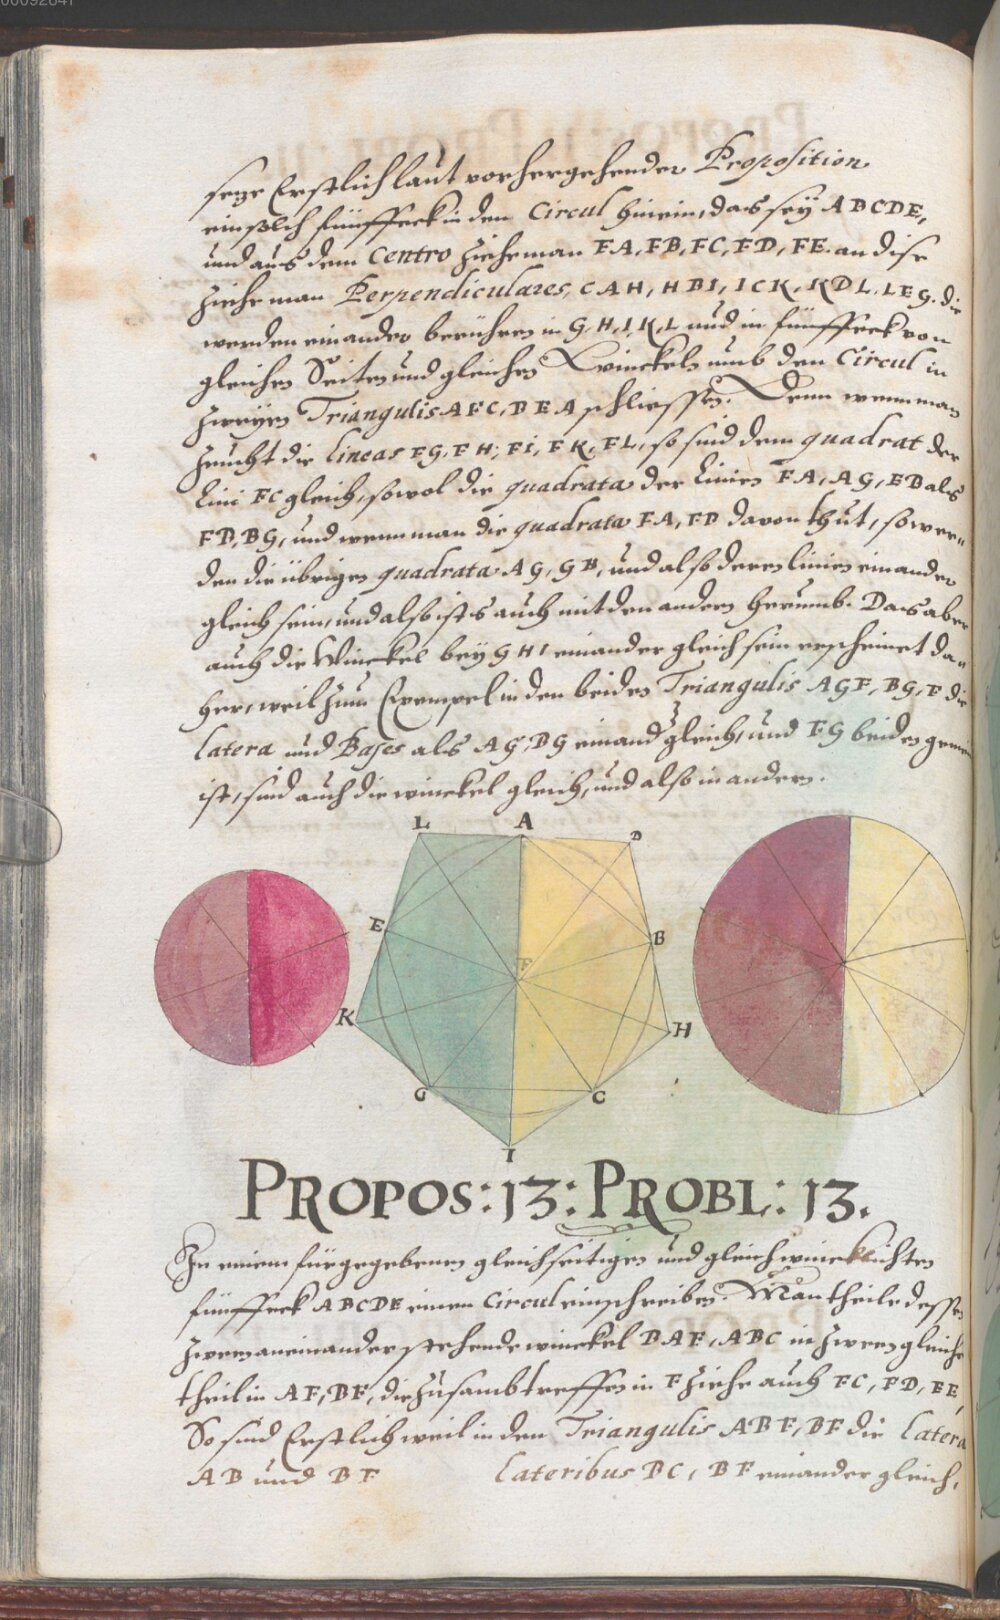 00092641
setze Erstlich laut vorhergehender Proposition
ein solch fünffeck in den Circul hinein, das sey ABCDE,
und aus dem Centro ziehe man FA, FB, FC, FD, FE. an dise
ziehe man Perpendiculares, GAH, HBI, ICK, KDL, LEG. die
werden einander berühren in G, H, I, K, L und in fünffeck von
gleichen Seiten und gleichen Winckeln umb den Circul in
zweyen Triangulis AFC, BEA schliessen. Denn wenn man
zeucht die lineas FG, FH, FI, FK, FL, so sind dem quadrat der
Lini FC gleich, sowol die quadrata der Linien FA, AG, FB als
FD, BG, und wenn man die quadrata FA, FD davon thut, so wer-
den die übrigen quadrata AG, GB, und also deren linien einander
gleich sein, und also ist es auch mit den andern herumb. Das aber
auch die Winckel bey GHI einander gleich sein erscheinet da-
her, weil zum Exempel in den beiden Triangulis AGF, BG, F die
latera und Bases als AG, BG einand gleich, und FG beiden gemein
ist, sind auch die winckel gleich, und also in andern.
L A D
E B
F
K H
G C
I
PROPOS: 13: PROBL: 13.
In einem fürgegebenen gleichseitigen und gleichwincklichten
fünffeck ABCDE einen Circul einschreiben. Man theile dessen
zwen aneinander stehende winckel BAE, ABC in zween gleiche
theil in AF, BF, die zusamb treffen in F ziehe auch FC, FD, FE,
So sind Erstlich weil in den Triangulis ABF, BF die latera
AB und BF lateribus BC, BF einander gleich,